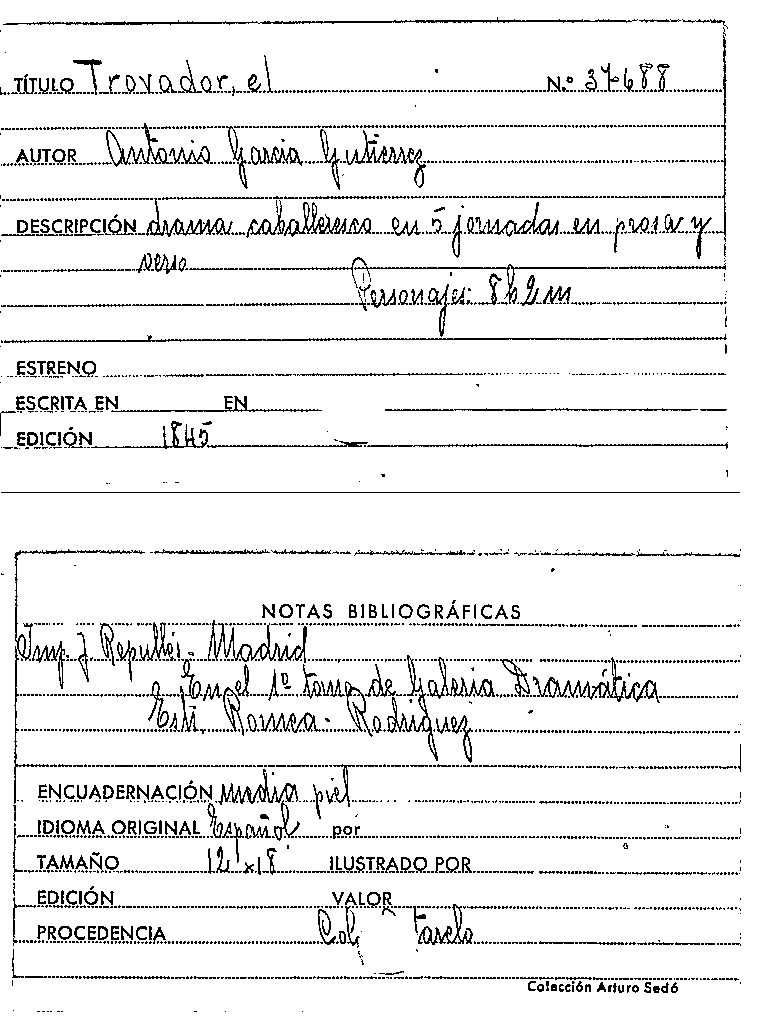 TÍTULO Trovador, el N.º 37688
AUTOR Antonio García Gutiérrez
DESCRIPCIÓN drama caballeresco en 5 jornadas en prosa y
verso
Personajes: 8h 2m
ESTRENO
ESCRITA EN EN
EDICIÓN 1845
NOTAS BIBLIOGRÁFICAS
Imp. J. Repullés - Madrid
En el 1º tomo de Galería Dramática
Romea - Rodriguez
ENCUADERNACIÓN media piel
IDIOMA ORIGINAL Español por
TAMAÑO 12'x18' ILUSTRADO POR
EDICIÓN VALOR
PROCEDENCIA Col
Colección Arturo Sedó